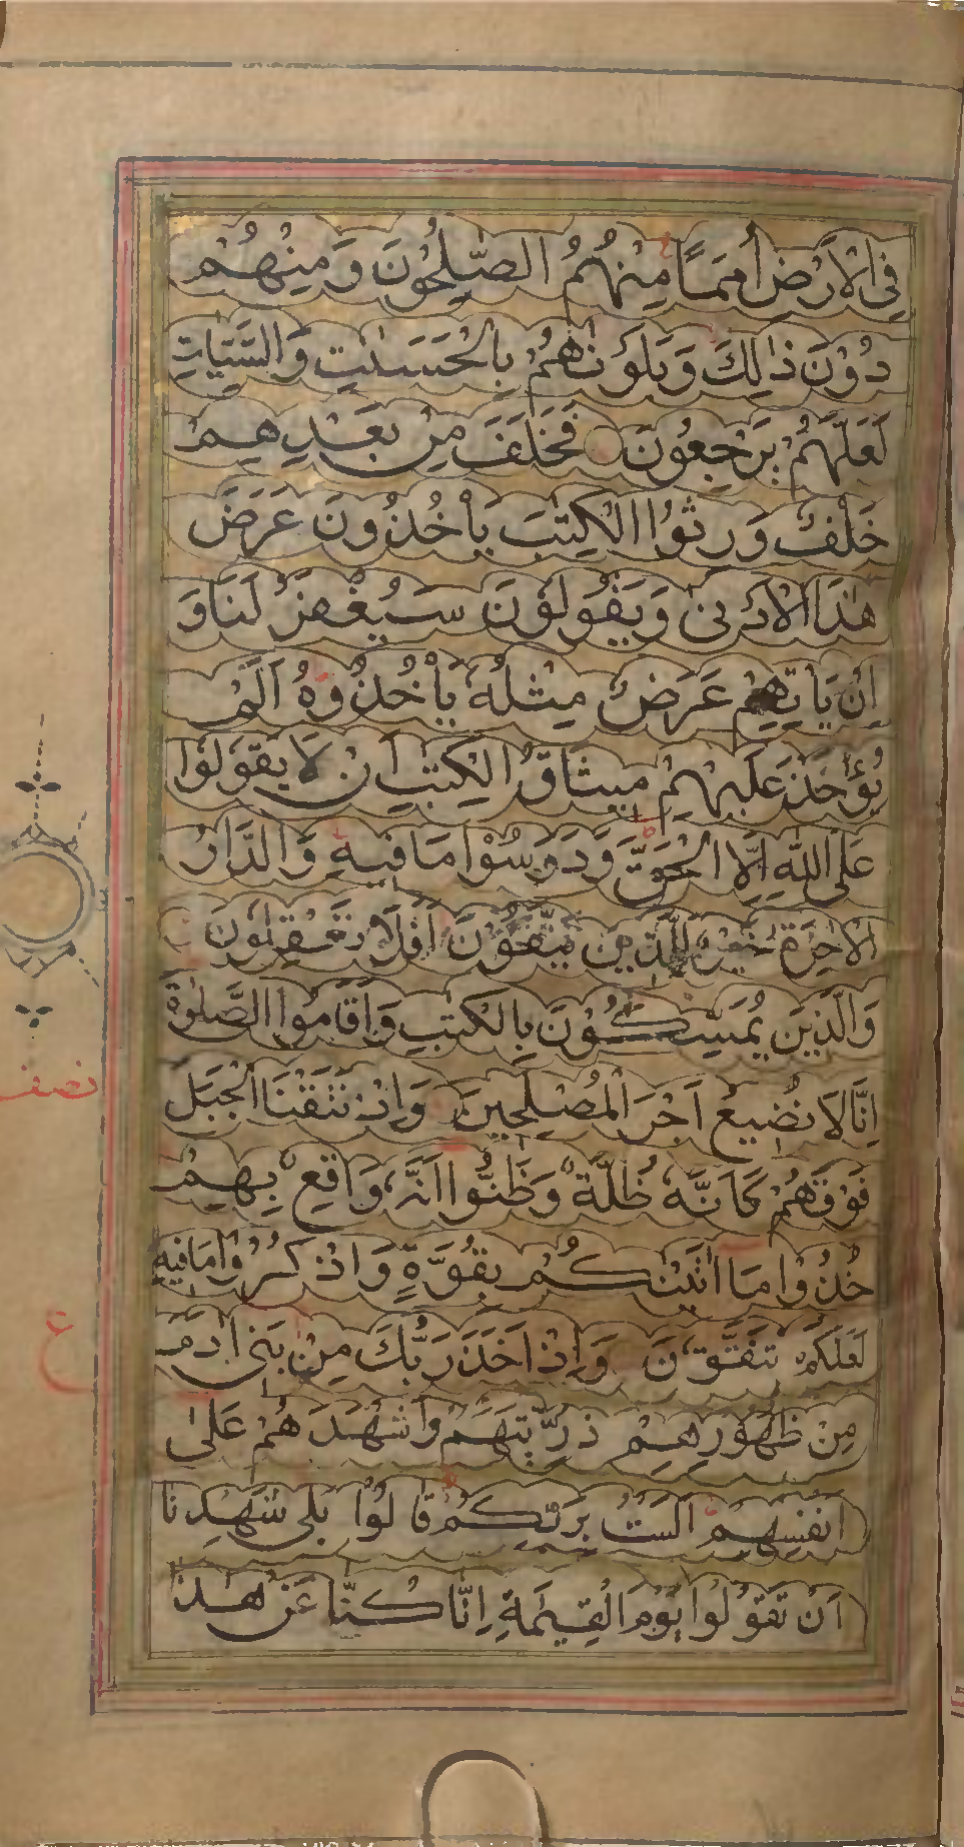 فِی الْاَرْضِ اُمَمًا مِنْهُمُ الصّٰلِحُوْنَ وَمِنْهُمْ
دُوْنَ ذٰلِكَ وَبَلَوْنٰهُمْ بِالْحَسَنٰتِ وَالسَّيِّاٰتِ
لَعَلَّهُمْ يَرْجِعُوْنَ فَخَلَفَ مِنْ بَعْدِهِمْ
خَلْفٌ وَرِثُوا الْكِتٰبَ يَاْخُذُوْنَ عَرَضَ
هٰذَا الْاَدْنٰى وَيَقُوْلُوْنَ سَيُغْفَرُ لَنَا وَ
اِنْ يَاْتِهِمْ عَرَضٌ مِثْلُهٗ يَاْخُذُوْهُ اَلَمْ
يُؤْخَذْ عَلَيْهِمْ مِيْثَاقُ الْكِتٰبِ اَنْ لَا يَقُوْلُوْا
عَلَى اللّٰهِ اِلَّا الْحَقَّ وَدَرَسُوْا مَا فِيْهِ وَالدَّارُ
الْاٰخِرَةُ خَيْرٌ لِلَّذِيْنَ يَتَّقُوْنَ اَفَلَا تَعْقِلُوْنَ
وَالَّذِيْنَ يُمَسِّكُوْنَ بِالْكِتٰبِ وَاَقَامُوا الصَّلٰوةَ
اِنَّا لَا نُضِيْعُ اَجْرَ الْمُصْلِحِيْنَ وَاِذْ نَتَقْنَا الْجَبَلَ
نصف
فَوْقَهُمْ كَاَنَّهٗ ظُلَّةٌ وَظَنُّوْا اَنَّهٗ وَاقِعٌ بِهِمْ
خُذُوْا مَا اٰتَيْنٰكُمْ بِقُوَّةٍ وَاذْكُرُوْا مَا فِيْهِ
لَعَلَّكُمْ تَتَّقُوْنَ وَاِذْ اَخَذَ رَبُّكَ مِنْ بَنِیْ اٰدَمَ
ع
مِنْ ظُهُوْرِهِمْ ذُرِّيَّتَهُمْ وَاَشْهَدَهُمْ عَلٰى
اَنْفُسِهِمْ اَلَسْتُ بِرَبِّكُمْ قَالُوْا بَلٰى شَهِدْنَا
اَنْ تَقُوْلُوْا يَوْمَ الْقِيٰمَةِ اِنَّا كُنَّا عَنْ هٰذَا